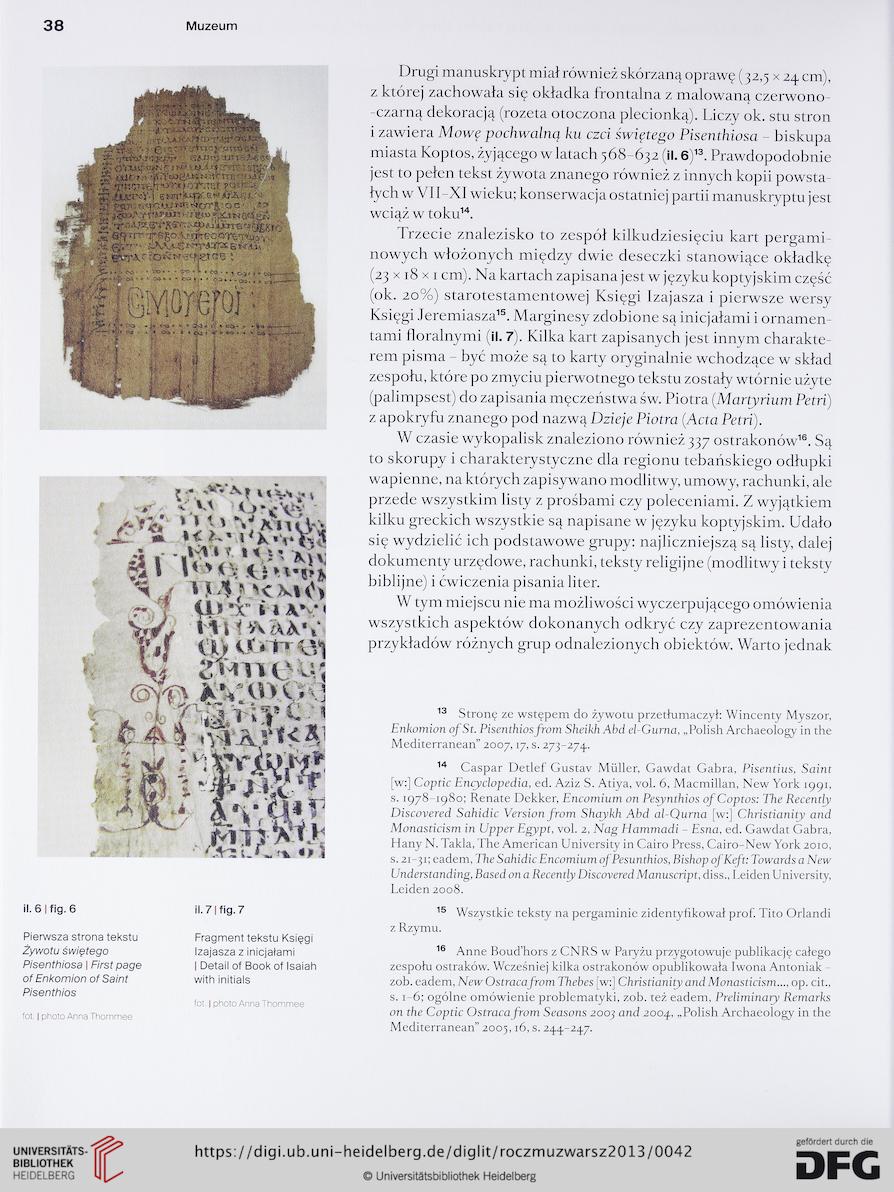 38
Muzeum
Drugi manuskrypt miał również skórzaną oprawę (32,5 × 24 cm),
z której zachowała się okładka frontalna z malowaną czerwono-
-czarną dekoracją (rozeta otoczona plecionką). Liczy ok. stu stron
i zawiera Mowę pochwalną ku czci świętego Pisenthiosa – biskupa
miasta Koptos, żyjącego w latach 568–632 (il. 6)¹³. Prawdopodobnie
jest to pełen tekst żywota znanego również z innych kopii powsta-
łych w VII–XI wieku; konserwacja ostatniej partii manuskryptu jest
wciąż w toku¹⁴.
Trzecie znalezisko to zespół kilkudziesięciu kart pergami-
nowych włożonych między dwie deseczki stanowiące okładkę
(23 × 18 × 1 cm). Na kartach zapisana jest w języku koptyjskim część
(ok. 20%) starotestamentowej Księgi Izajasza i pierwsze wersy
Księgi Jeremiasza¹⁵. Marginesy zdobione są inicjałami i ornamen-
tami floralnymi (il. 7). Kilka kart zapisanych jest innym charakte-
rem pisma – być może są to karty oryginalnie wchodzące w skład
zespołu, które po zmyciu pierwotnego tekstu zostały wtórnie użyte
(palimpsest) do zapisania męczeństwa św. Piotra (Martyrium Petri)
z apokryfu znanego pod nazwą Dzieje Piotra (Acta Petri).
W czasie wykopalisk znaleziono również 337 ostrakonów¹⁶. Są
to skorupy i charakterystyczne dla regionu tebańskiego odłupki
wapienne, na których zapisywano modlitwy, umowy, rachunki, ale
przede wszystkim listy z prośbami czy poleceniami. Z wyjątkiem
kilku greckich wszystkie są napisane w języku koptyjskim. Udało
się wydzielić ich podstawowe grupy: najliczniejszą są listy, dalej
dokumenty urzędowe, rachunki, teksty religijne (modlitwy i teksty
biblijne) i ćwiczenia pisania liter.
W tym miejscu nie ma możliwości wyczerpującego omówienia
wszystkich aspektów dokonanych odkryć czy zaprezentowania
przykładów różnych grup odnalezionych obiektów. Warto jednak
13 Stronę ze wstępem do żywotu przetłumaczył: Wincenty Myszor,
Enkomion of St. Pisenthios from Sheikh Abd el-Gurna, „Polish Archaeology in the
Mediterranean” 2007, 17, s. 273–274.
14 Caspar Detlef Gustav Müller, Gawdat Gabra, Pisentius, Saint
[w:] Coptic Encyclopedia, ed. Aziz S. Atiya, vol. 6, Macmillan, New York 1991,
s. 1978–1980; Renate Dekker, Encomium on Pesynthios of Coptos: The Recently
Discovered Sahidic Version from Shaykh Abd al-Qurna [w:] Christianity and
Monasticism in Upper Egypt, vol. 2, Nag Hammadi – Esna, ed. Gawdat Gabra,
Hany N. Takla, The American University in Cairo Press, Cairo–New York 2010,
s. 21–31; eadem, The Sahidic Encomium of Pesunthios, Bishop of Keft: Towards a New
Understanding, Based on a Recently Discovered Manuscript, diss., Leiden University,
Leiden 2008.
15 Wszystkie teksty na pergaminie zidentyfikował prof. Tito Orlandi
z Rzymu.
16 Anne Boud'hors z CNRS w Paryżu przygotowuje publikację całego
zespołu ostraków. Wcześniej kilka ostrakonów opublikowała Iwona Antoniak –
zob. eadem, New Ostraca from Thebes [w:] Christianity and Monasticism..., op. cit.,
s. 1–6; ogólne omówienie problematyki, zob. też eadem, Preliminary Remarks
on the Coptic Ostraca from Seasons 2003 and 2004, „Polish Archaeology in the
Mediterranean” 2005, 16, s. 244–247.
il. 6 | fig. 6
Pierwsza strona tekstu
Żywotu świętego
Pisenthiosa | First page
of Enkomion of Saint
Pisenthios
fot. | photo Anna Thommee
il. 7 | fig. 7
Fragment tekstu Księgi
Izajasza z inicjałami
| Detail of Book of Isaiah
with initials
fot. | photo Anna Thommee
UNIVERSITÄTS-
BIBLIOTHEK
HEIDELBERG
https://digi.ub.uni-heidelberg.de/diglit/roczmuzwarsz2013/0042
© Universitätsbibliothek Heidelberg
gefördert durch die
DFG